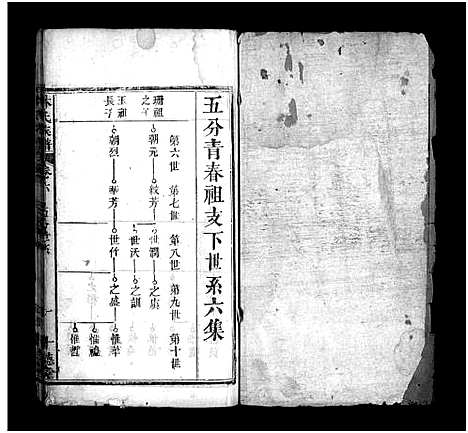 五分青春祖支下世系六集
第六世 第七世 第八世 第九世 第十世
珊祖之子 朝元 紋芳 世潤 之
世沃 之訓
玉祖長子 朝烈 華芳 世什 之盛 惟華
惟禮
惟哲
林氏族譜 卷六